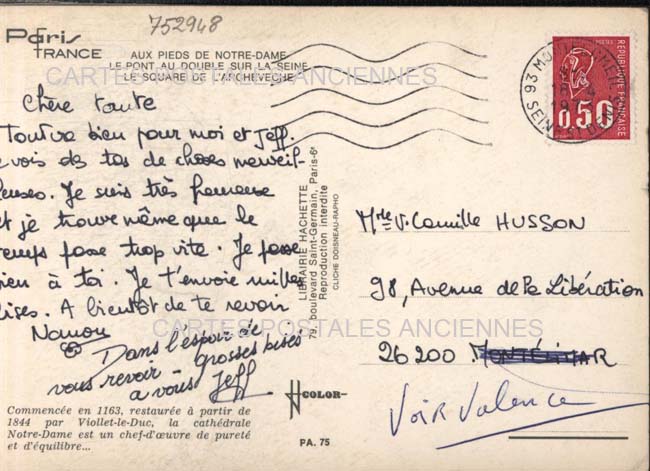 752948
Paris
FRANCE
AUX PIEDS DE NOTRE-DAME
LE PONT AU DOUBLE SUR LA SEINE
LE SQUARE DE L'ARCHEVECHE
CARTES POSTALES ANCIENNES
Chère tante
Tout va bien pour moi et Jeff.
vois des tas de choses merveil-
leuses. Je suis très heureuse
et je trouve même que le
temps passe trop vite. Je pense
bien à toi. Je t'envoie milles
bises. A bientôt de te revoir
Nanou
Dans l'espoir de
vous revoir - grosses bises
a vous Jeff
Commencée en 1163, restaurée à partir de
1844 par Viollet-le-Duc, la cathédrale
Notre-Dame est un chef-d'œuvre de pureté
et d'équilibre...
LIBRAIRIE HACHETTE
79, boulevard Saint-Germain, Paris-6e
Reproduction interdite
CLICHÉ DOISNEAU-RAPHO
COLOR
PA. 75
REPUBLIQUE FRANÇAISE
0,50
93 MONTFERMEIL
SEINE ST DENIS
Mme V. Camille HUSSON
98, Avenue de la Libération
26200 MONTÉLIMAR
Voir Valence
CARTES POSTALES ANCIENNES